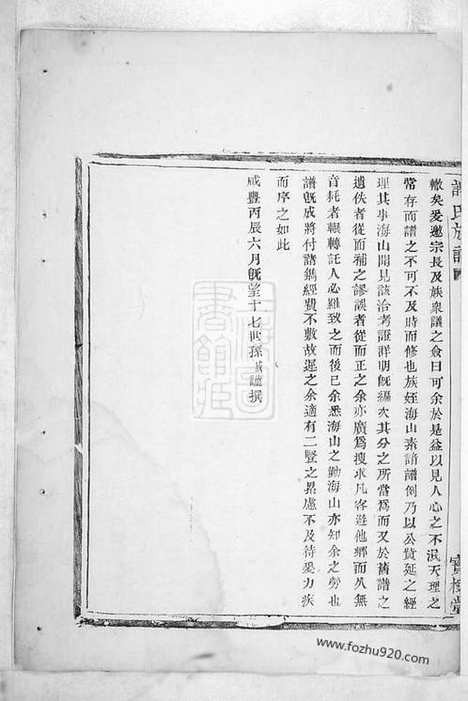 氏族譜
轍矣爰邀宗長及族衆議之僉曰可余於是益以見人心之不泯天理之
常存而譜之不可不及時而修也族姪海山素諳譜例乃以公貲延之經
理其事海山聞見該洽考證詳明既編次其分之所當爲而又於舊譜之
遺佚者從而補之謬誤者從而正之余亦廣爲搜求凡客遊他鄉而久無
音耗者輾轉託人必羅致之而後已余悉海山之勤海山亦知余之勞也
譜既成將付諸鐫經費不敷故遲之余適有二豎之累慮不及待爰力疾
而序之如此
咸豐丙辰六月既望十七世孫 謹撰
寶樹堂
www.fozhu920.com